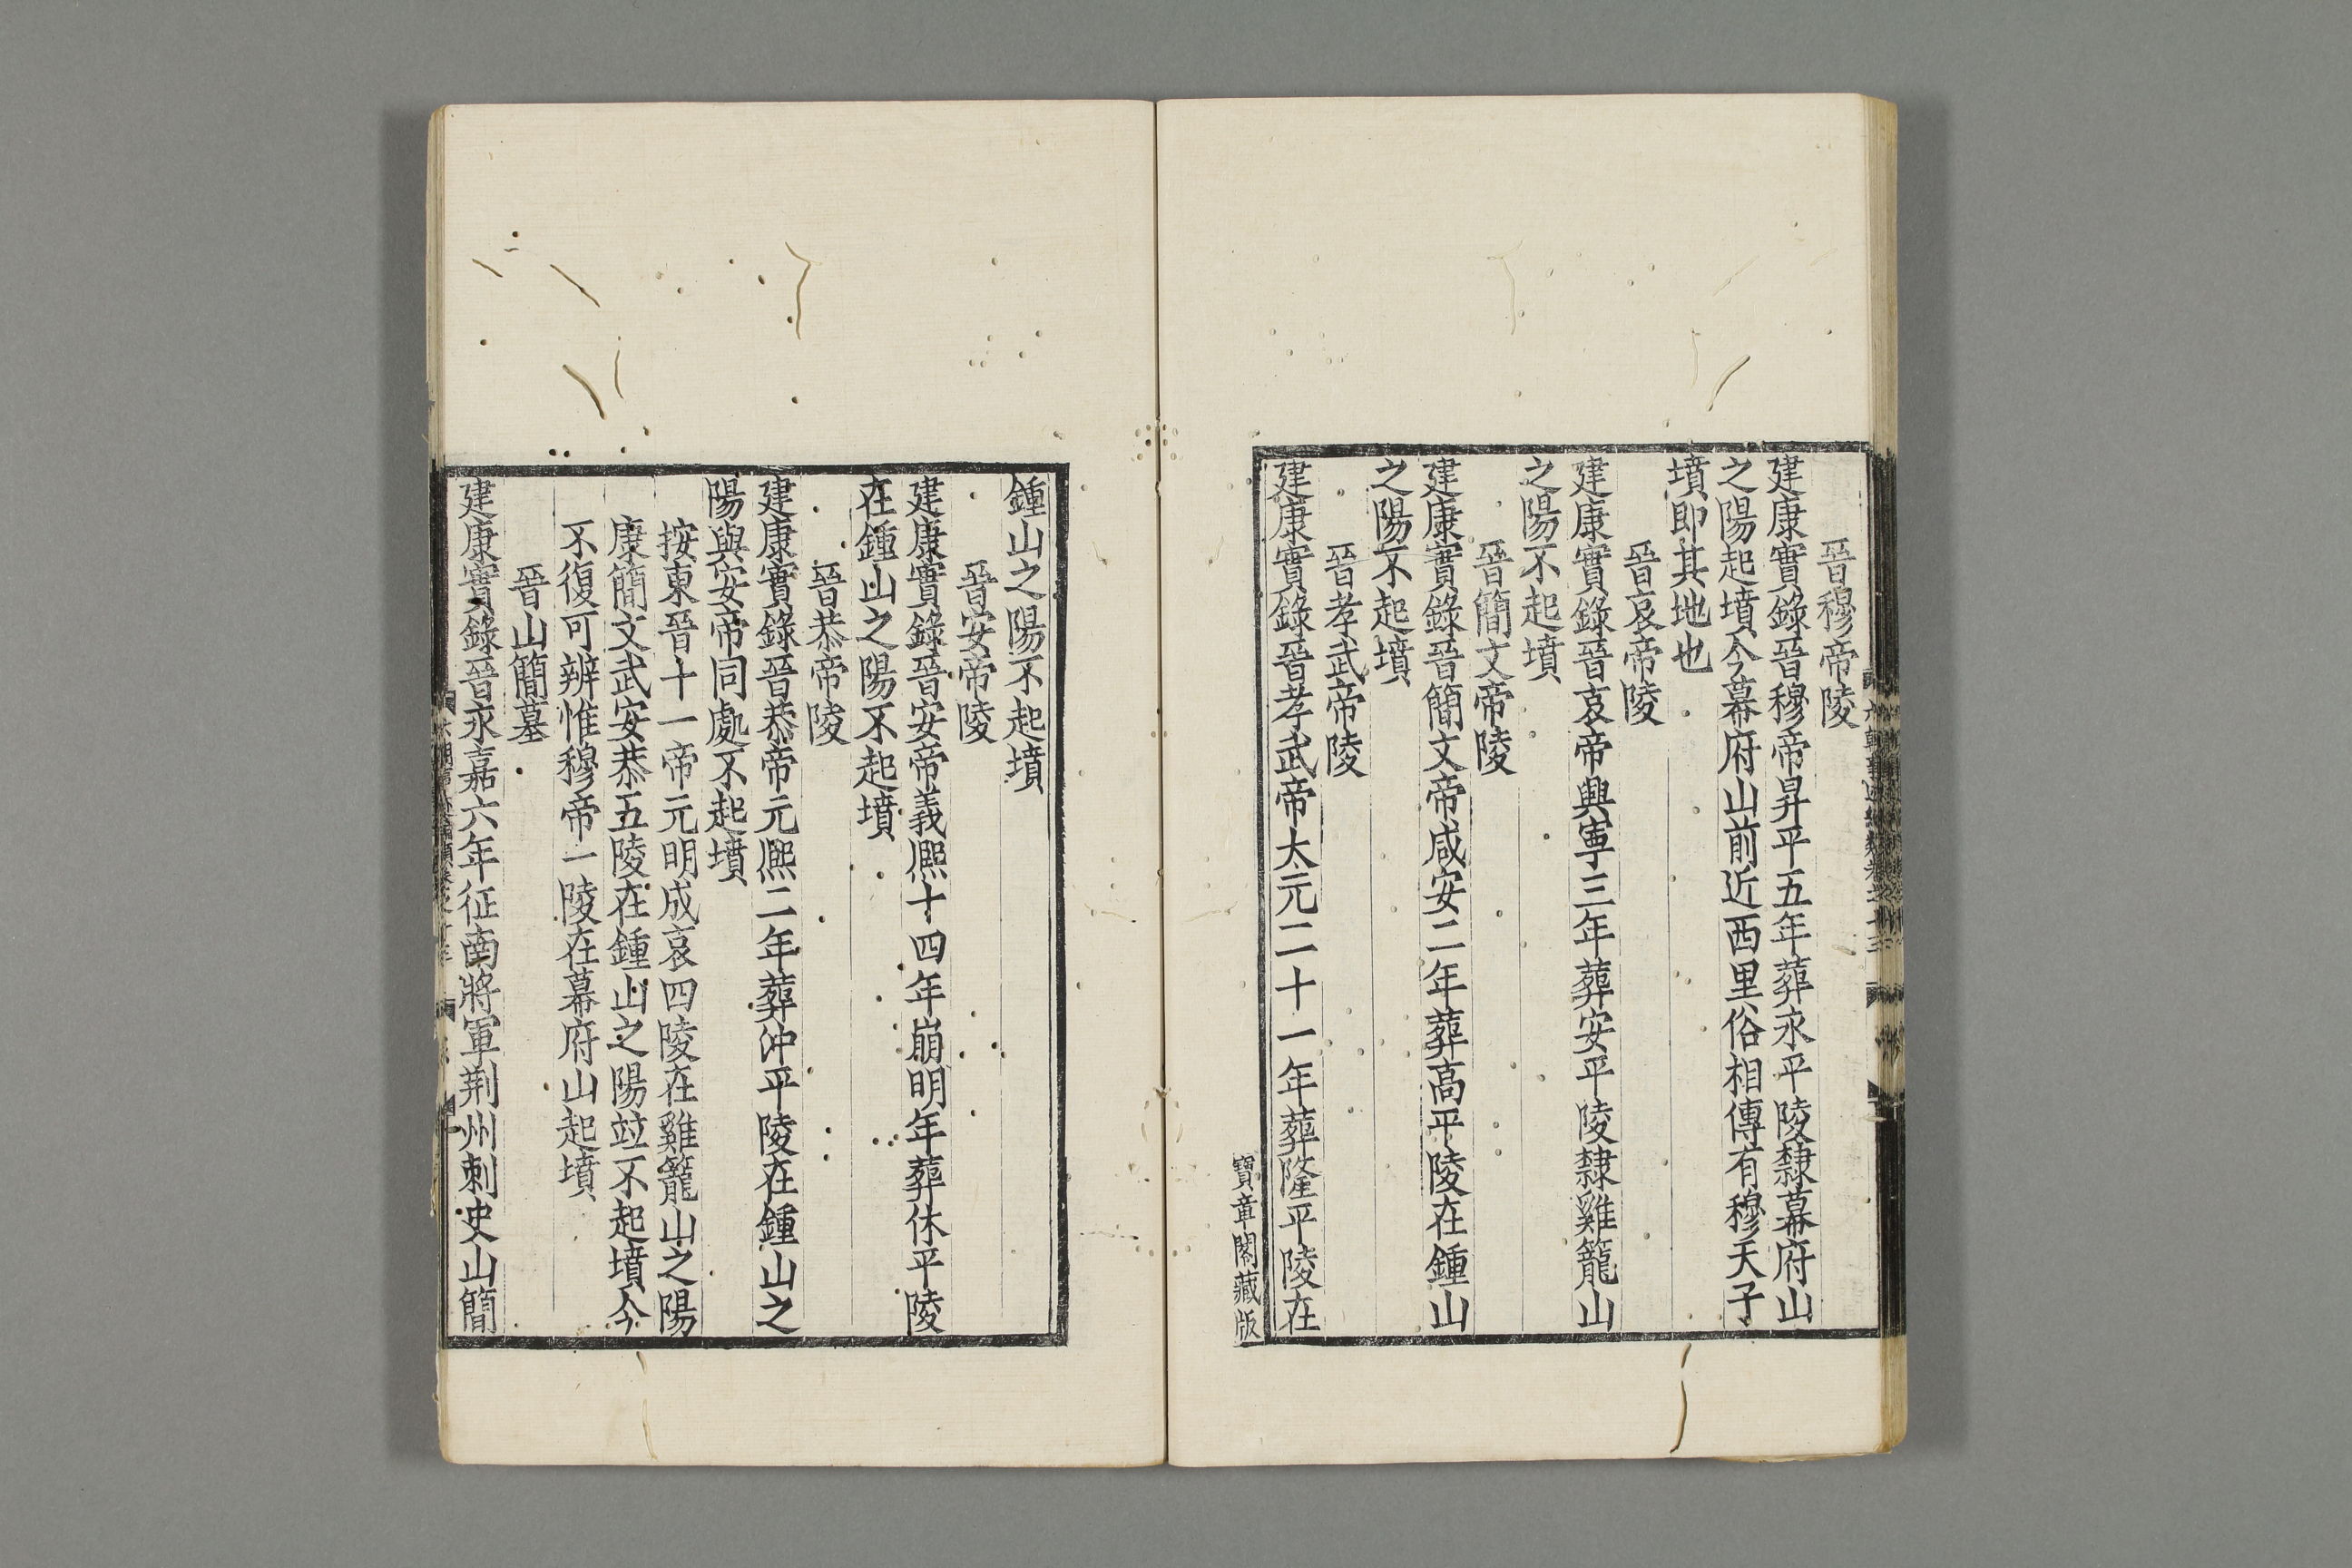 晉穆帝陵
建康實錄晉穆帝昇平五年葬永平陵隸幕府山
之陽起墳今幕府山前近西里俗相傳有穆天子
墳即其地也
晉哀帝陵
建康實錄晉哀帝興寧三年葬安平陵隸雞籠山
之陽不起墳
晉簡文帝陵
建康實錄晉簡文帝咸安二年葬高平陵在鍾山
之陽不起墳
晉孝武帝陵
建康實錄晉孝武帝太元二十一年葬隆平陵在
寶章閣藏版
鍾山之陽不起墳
晉安帝陵
建康實錄晉安帝義熈十四年崩明年葬休平陵
在鍾山之陽不起墳
晉恭帝陵
建康實錄晉恭帝元熈二年葬沖平陵在鍾山之
陽與安帝同處不起墳
按東晉十一帝元明成哀四陵在雞籠山之陽
康簡文武安恭五陵在鍾山之陽竝不起墳今
不復可辨惟穆帝一陵在幕府山起墳
晉山簡墓
建康實錄晉永嘉六年征南將軍荆州刺史山簡